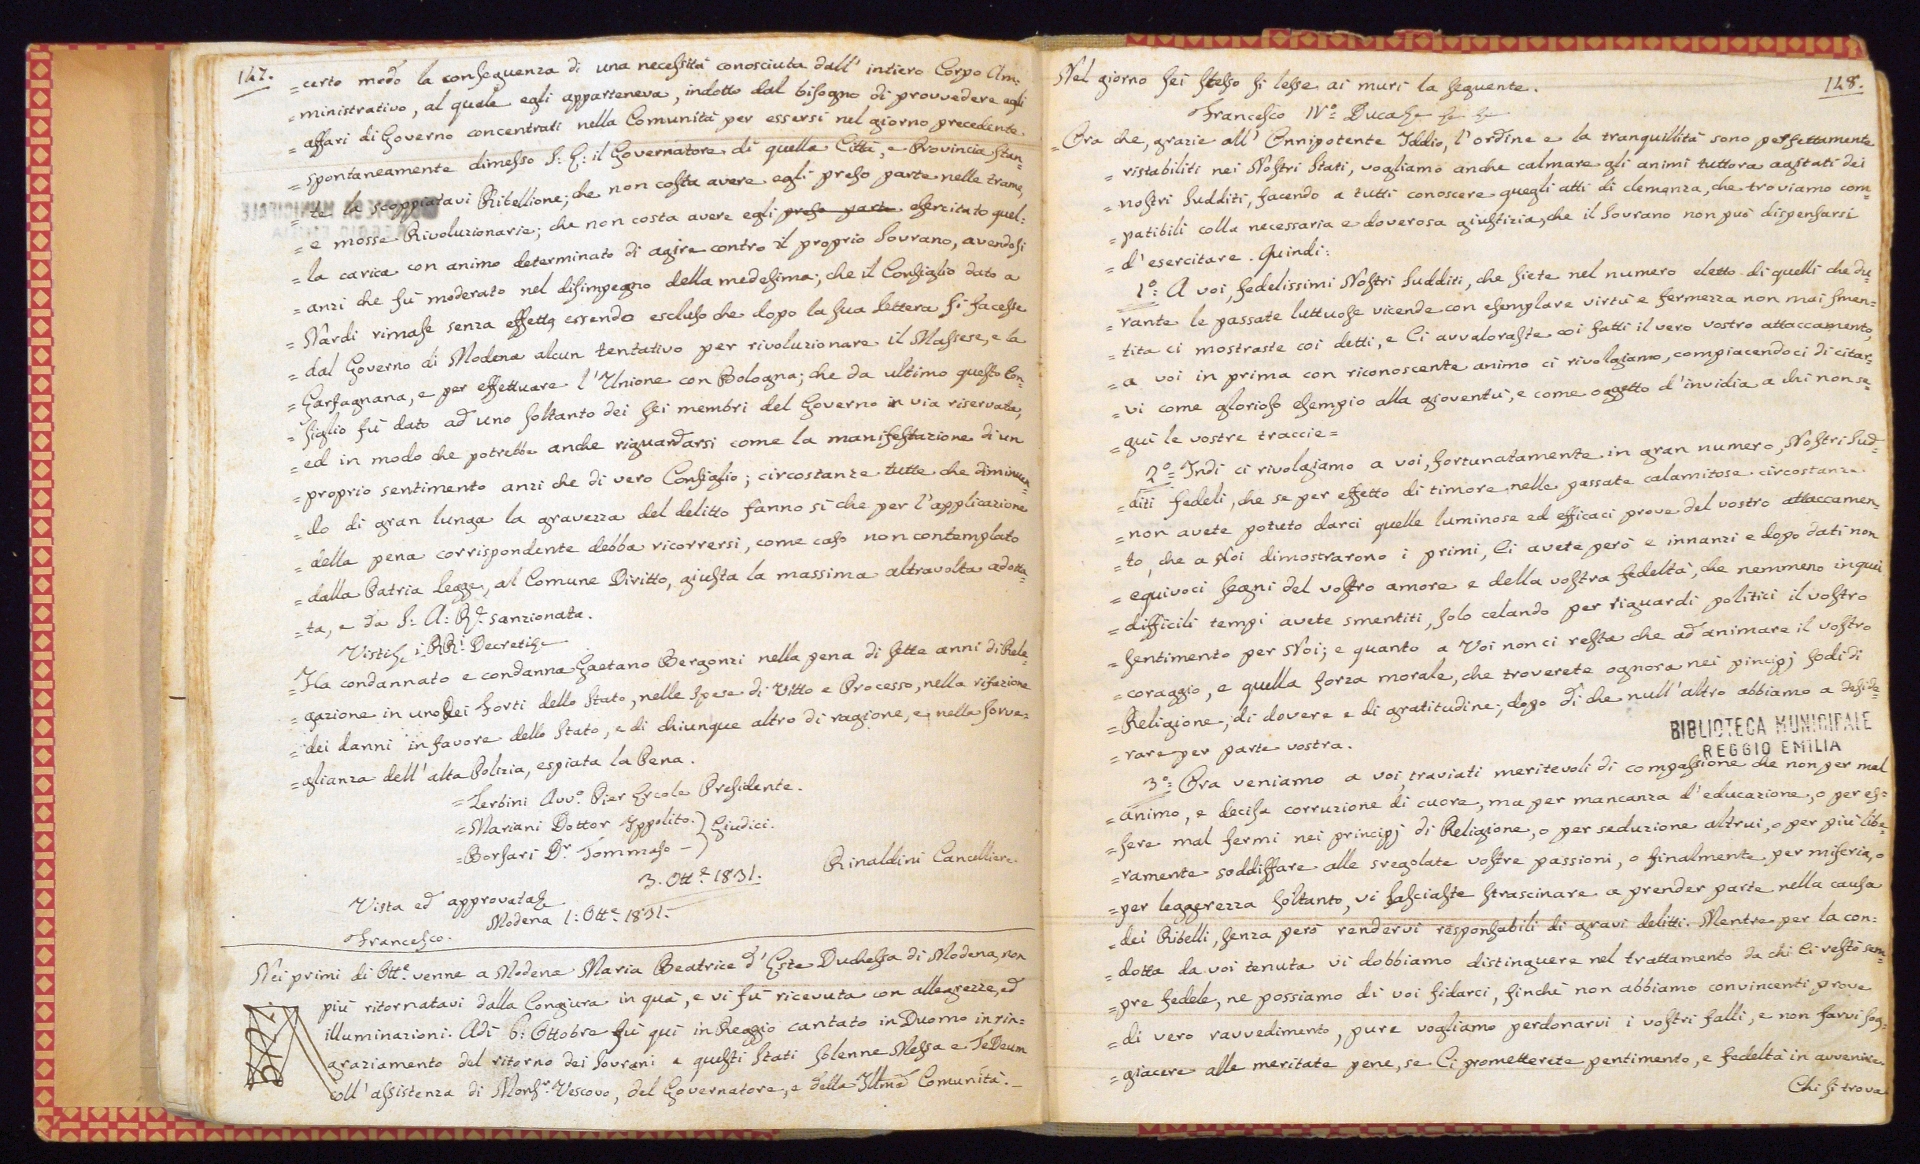 147.
= certo modo la conseguenza di una necessità conosciuta dall' intiero Corpo Am=
= ministrativo, al quale egli apparteneva, indotto dal bisogno di provvedere agli
= affari di Governo concentrati nella Comunità per essersi nel giorno precedente
= spontaneamente dimesso S: E: il Governatore di quella Città, e Provincia stan=
= te la scoppiatavi Ribellione; che non costa avere egli preso parte nelle trame,
= e mosse Rivoluzionarie; che non costa avere egli preso parte esercitato quel=
= la carica con animo determinato di agire contro il proprio Sovrano, avendosi
anzi che fù moderato nel disimpegno della medesima; che il Consiglio dato a
= Nardi rimase senza effetto essendo escluso che dopo la sua lettera si facesse
= dal Governo di Modena alcun tentativo per rivoluzionare il Massese, e la
= Garfagnana, e per effettuare l'Unione con Bologna; che da ultimo questo Con=
= siglio fù dato ad uno soltanto dei sei membri del Governo in via riservata,
= ed in modo che potrebbe anche riguardarsi come la manifestazione di un
= proprio sentimento anzi che di vero Consiglio; circostanze tutte che diminuen=
= do di gran lunga la gravezza del delitto fanno sì che per l'applicazione
= della pena corrispondente debba ricorrersi, come caso non contemplato
= dalla Patria Legge, al Comune Diritto, giusta la massima altravolta adotta=
= ta, e da S: A: R: sanzionata.
Visti i RRi Decreti
= Ha condannato e condanna Gaetano Bergonzi nella pena di sette anni di Rele=
= gazione in uno dei Forti dello Stato, nelle spese di Vitto e Processo, nella rifazione
= dei danni in favore dello Stato, e di chiunque altro di ragione, e nella sorve=
= glianza dell' alta Polizia, espiata la Pena.
= Zerbini Avv.o Pier Ercole Presidente.
= Mariani Dottor Ippolito. } Giudici.
= Borsari Dr Tommaso -
Rinaldini Cancelliere
3. Ott.e 1831.
Vista ed approvata
Modena 1: Ott.e 1831.
Francesco.
Nei primi di Ott.e venne a Modena Maria Beatrice d'Este Duchessa di Modena, non
più ritornatavi dalla Congiura in quà, e vi fù ricevuta con allegrezze, ed
illuminazioni. Adì 6: Ottobre fù quì in Reggio cantato in Duomo in rin=
graziamento del ritorno dei Sovrani a questi Stati solenne Messa e TeDeum
coll' assistenza di Mons.r Vescovo, del Governatore, e della Illma Comunità. -
148.
Nel giorno sei stesso si lesse ai muri la seguente.
Francesco IV.o Duca
= Ora che, grazie all' Onnipotente Iddio, l'ordine e la tranquillità sono perfettamente
= ristabiliti nei Nostri Stati, vogliamo anche calmare gli animi tuttora agitati dei
= nostri Sudditi, facendo a tutti conoscere quegli atti di clemenza, che troviamo com=
= patibili colla necessaria e doverosa giustizia, che il Sovrano non può dispensarsi
= d'esercitare. Quindi:
1.o: A voi, fedelissimi Nostri Sudditi, che siete nel numero eletto di quelli che du=
= rante le passate luttuose vicende con esemplare virtù e fermezza non mai smen=
= tita ci mostraste coi detti, e Ci avvaloraste coi fatti il vero vostro attaccamento,
= a voi in prima con riconoscente animo ci rivolgiamo, compiacendoci di citar=
= vi come glorioso esempio alla gioventù, e come oggetto d'invidia a chi non se=
= guì le vostre traccie =
2.o = Indi ci rivolgiamo a voi, fortunatamente in gran numero, Nostri Sud=
= diti fedeli, che se per effetto di timore nelle passate calamitose circostanze
= non avete potuto darci quelle luminose ed efficaci prove del vostro attaccamen=
= to, che a Noi dimostrarono i primi, Ci avete però e innanzi e dopo dati non
= equivoci segni del vostro amore e della vostra fedeltà, che nemmeno in quei
= difficili tempi avete smentiti, solo celando per riguardi politici il vostro
= sentimento per Noi; e quanto a Voi non ci resta che ad animare il vostro
= coraggio, e quella forza morale, che troverete ognora nei pincipj sodi di
= Religione, di dovere e di gratitudine; dopo di che null'altro abbiamo a deside=
= rare per parte vostra.
BIBLIOTECA MUNICIPALE
REGGIO EMILIA
3.o: Ora veniamo a voi, traviati meritevoli di compassione che non per mal
= animo, e decisa corruzione di cuore, ma per mancanza d'educazione, o per es=
= sere mal fermi nei principj di Religione, o per seduzione altrui, o per più libe=
= ramente soddisfare alle sregolate vostre passioni, o finalmente per miseria, o
= per leggerezza soltanto, vi lasciaste strascinare a prender parte nella causa
= dei Ribelli, senza però rendervi responsabili di gravi delitti. Mentre per la con=
= dotta da voi tenuta vi dobbiamo distinguere nel trattamento da chi Ci restò sem=
= pre fedele, ne possiamo di voi fidarci, finchè non abbiamo convincenti prove
= di vero ravvedimento, pure vogliamo perdonarvi i vostri falli, e non farvi sog=
= giacere alle meritate pene, se Ci prometterete pentimento, e fedeltà in avvenire.
Chi si trova